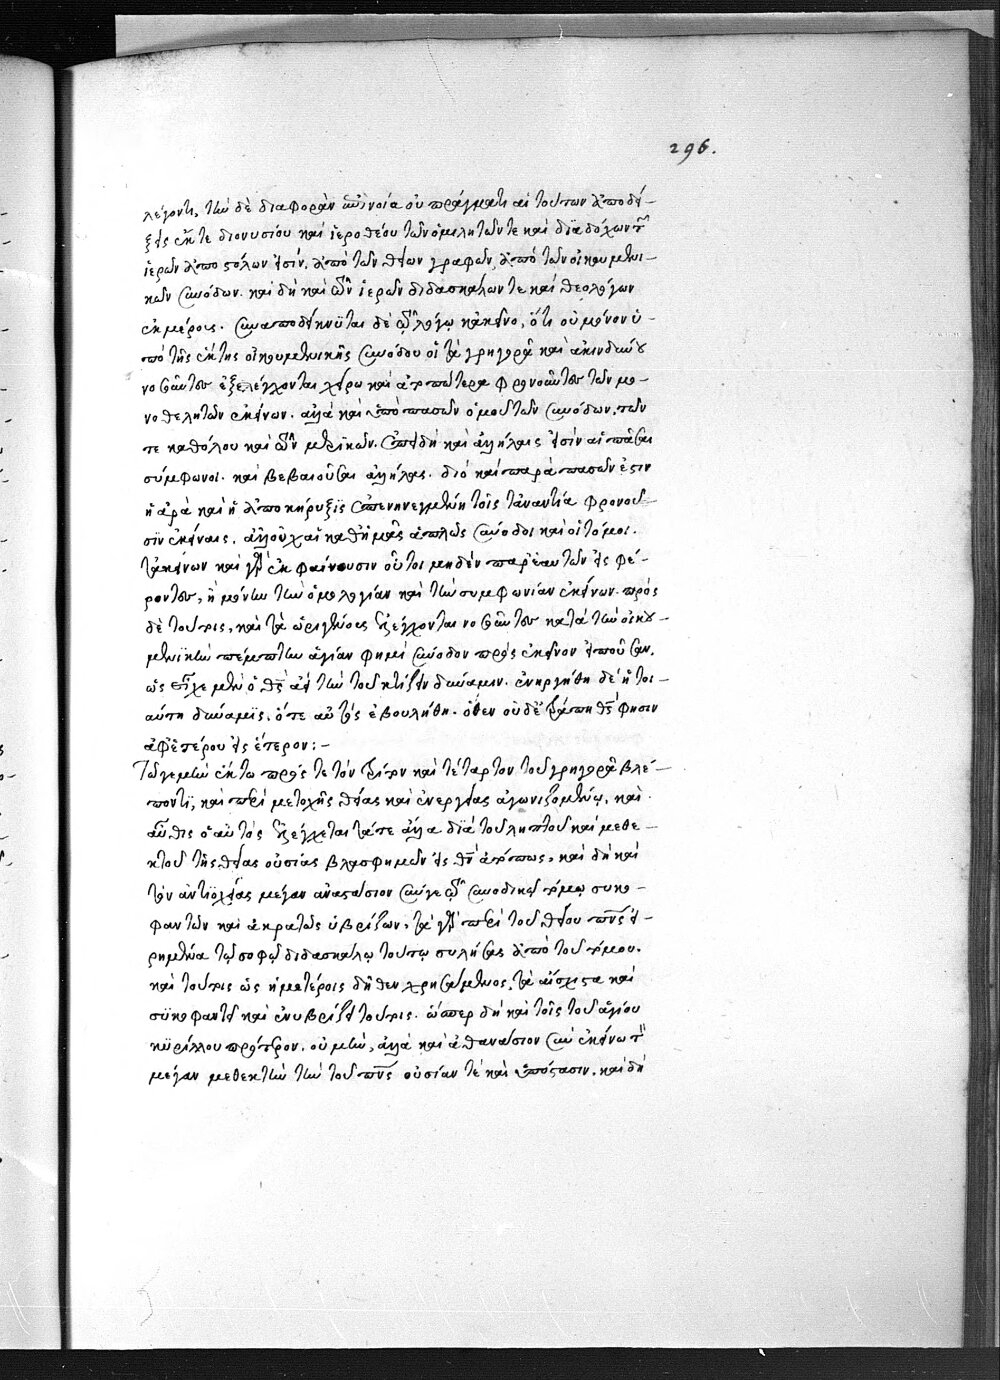 296.
λέγοντι, τὴν δὲ διαφορὰν ἐπινοία οὐ πράγματι αἱ τούτων ἀποδεί-
ξεις ἔκ τε διονυσίου καὶ ἱεροθέου τῶν ὁμιλητῶν τε καὶ διαδόχων τῶν
ἱερῶν ἀποστόλων εἰσίν. ἀπὸ τῶν θείων γραφῶν, ἀπὸ τῶν οἰκουμενι-
κῶν συνόδων. καὶ δὴ καὶ τῶν ἱερῶν διδασκάλων τε καὶ θεολόγων
ἐν μέρει. συναποδείκνυται δὲ τῷ λόγῳ κἀκεῖνο, ὅτι οὐ μόνον ὑ-
πὸ τῆς ἕκτης οἰκουμενικῆς συνόδου οἱ τὰ γρηγορᾶ καὶ ἀκινδύνου
νοσοῦντες ἐξελέγχονται χείρω καὶ ἀτοπώτερα φρονοῦντες τῶν μο-
νοθελητῶν ἐκείνων. ἀλλὰ καὶ ὑπὸ πασῶν ὁμοῦ τῶν συνόδων, τῶν
τε καθόλου καὶ τῶν μερικῶν. ἐπειδὴ καὶ ἀλλήλαις εἰσὶν αἱ πᾶσαι
σύμφωνοι. καὶ βεβαιοῦσαι ἀλλήλας. διὸ καὶ παρὰ πασῶν ἐστιν
ἡ ἀρὰ καὶ ἡ ἀποκήρυξις ἐπενηνεγμένη τοῖς τἀναντία φρονοῦ-
σιν ἐκείναις. ἀλλ' οὐχ αἱ καθ' ἡμᾶς ἁπλῶς σύνοδοι καὶ οἱ τόμοι.
τἀκείνων καὶ γὰρ ἐκφαίνουσιν οὗτοι μηδὲν παρ' ἑαυτῶν εἰσφέ-
ροντες, ἢ μόνην τὴν ὁμολογίαν καὶ τὴν συμφωνίαν ἐκείνων. πρὸς
δὲ τούτοις, καὶ τὰ ὠριγένους ἐξελέγχονται νοσοῦντες κατὰ τὴν οἰκου-
μενικὴν πέμπτην ἁγίαν φημὶ σύνοδον πρὸς ἐκεῖνον εἰποῦσαν,
ὡς εἶχε μὲν ὁ θεὸς ἀεὶ τὴν τοῦ κτίζειν δύναμιν. ἐνηργήθη δὲ ἡ τοι-
αύτη δύναμις, ὅτε αὐτὸς ἐβουλήθη. ὅθεν οὐδὲ ἐτράπη θεός φησιν
ἀφ' ἑτέρου εἰς ἕτερον:-
Τῷ γε μὴν ἕκτῳ πρός τε τὸν τρίτον καὶ τέταρτον τοῦ γρηγορᾶ βλέ-
ποντι, καὶ περὶ μετοχῆς θείας καὶ ἐνεργείας ἀγωνιζομένῳ, καὶ
αὖθις ὁ αὐτὸς ἐξελέγχεται τά τε ἄλλα διὰ τοῦ ληπτοῦ καὶ μεθε-
κτοῦ τῆς θείας οὐσίας βλασφημῶν εἰς θεὸν ἀτόπως, καὶ δὴ καὶ
τὸν ἀντιοχείας μέγαν ἀναστάσιον σύν γε τῷ συνοδικῷ τόμῳ συκο-
φαντῶν καὶ ἀκρατῶς ὑβρίζων, τὰ γὰρ περὶ τοῦ θείου πνεύματος εἰ-
ρημένα τῷ σοφῷ διδασκάλῳ τούτῳ συλήσας ἀπὸ τοῦ τόμου.
καὶ τούτοις ὡς ἡμετέροις δῆθεν χρησάμενος, τὰ αἴσχιστα καὶ
συκοφαντεῖ καὶ ἐνυβρίζει τούτοις. ὥσπερ δὴ καὶ τοῖς τοῦ ἁγίου
κυρίλλου πρότερον. οὐ μὴν, ἀλλὰ καὶ ἀθανάσιον σὺν ἐκείνῳ τὸν
μέγαν μεθεκτὴν τὴν τοῦ πνεύματος οὐσίαν τὲ καὶ ὑπόστασιν. καὶ δὴ